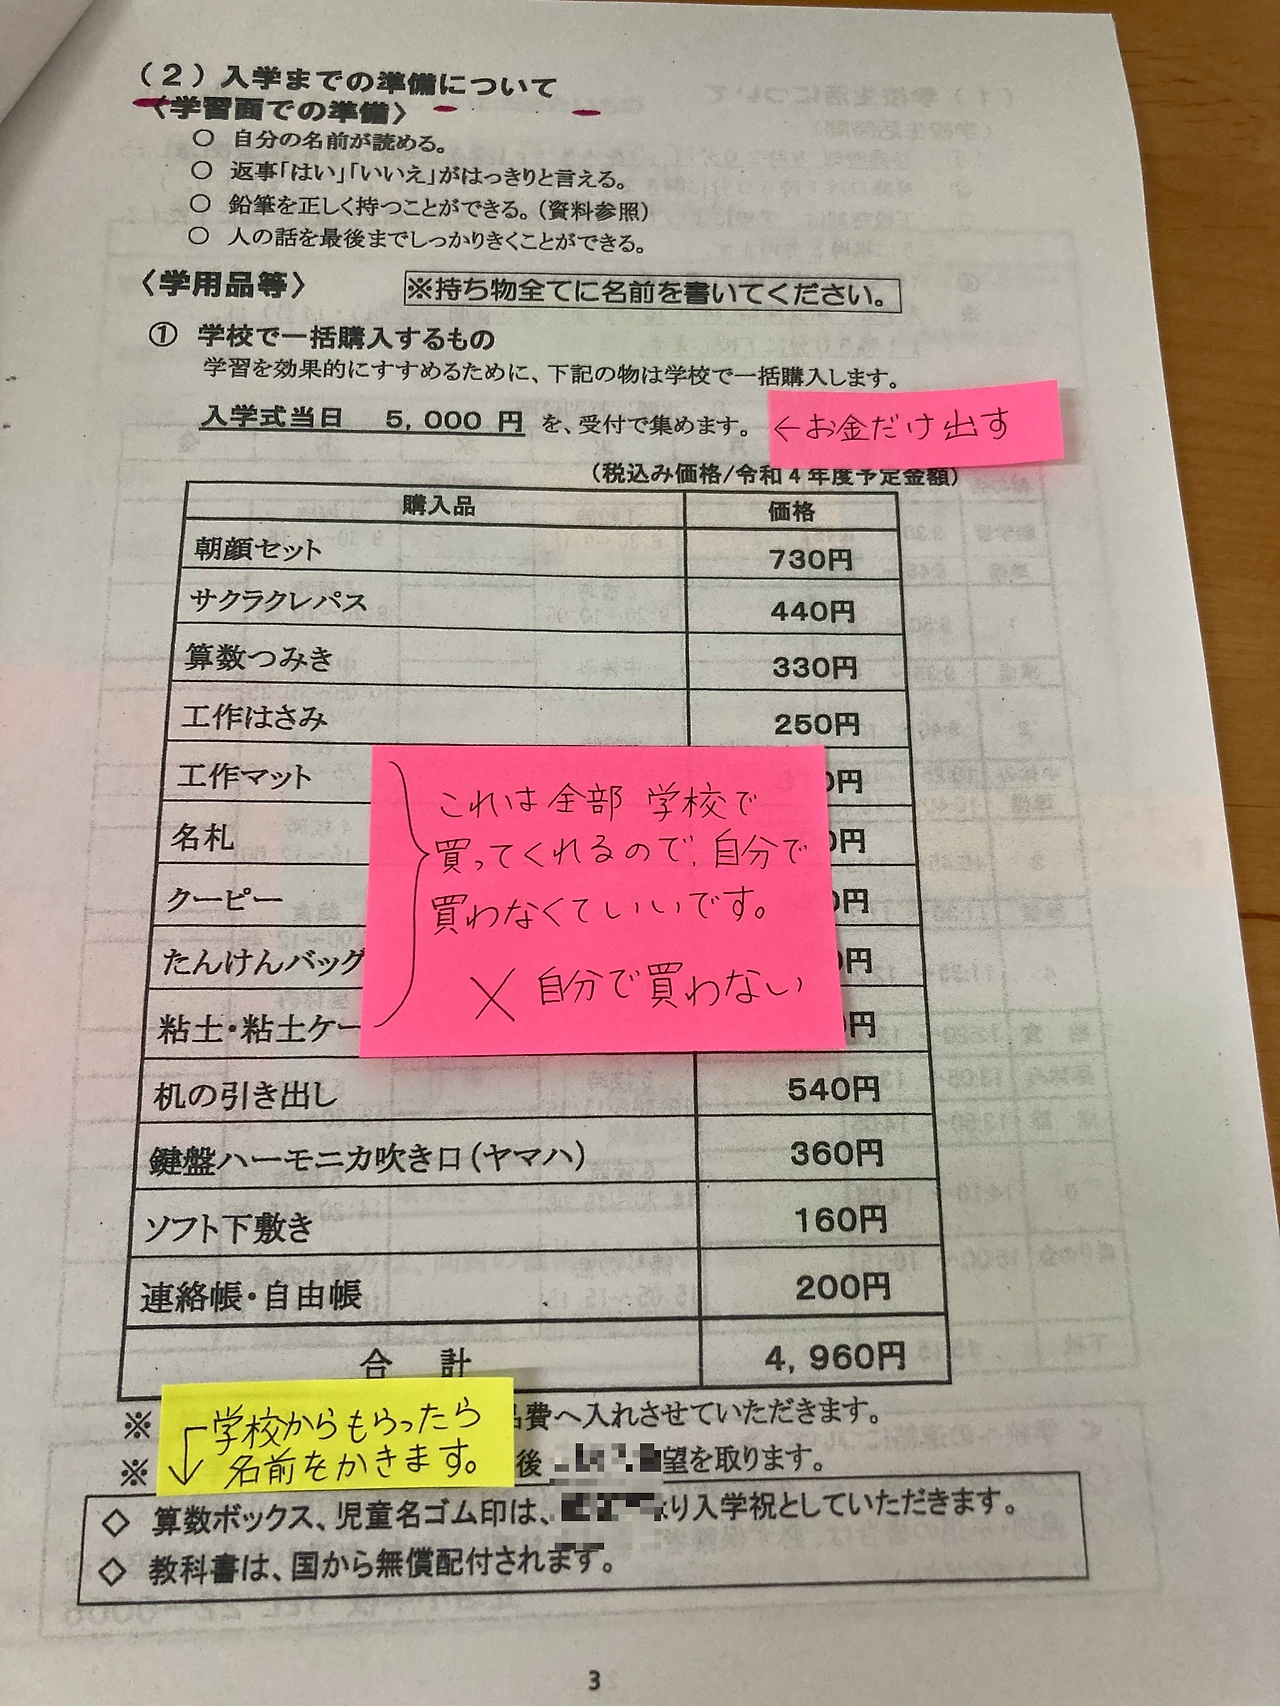 (2)入学までの準備について
〈学習面での準備〉
○ 自分の名前が読める。
○ 返事「はい」「いいえ」がはっきりと言える。
○ 鉛筆を正しく持つことができる。(資料参照)
○ 人の話を最後までしっかりきくことができる。
〈学用品等〉 ※持ち物全てに名前を書いてください。
① 学校で一括購入するもの
学習を効果的にすすめるために、下記の物は学校で一括購入します。
入学式当日 5,000円 を、受付で集めます。 ←お金だけ出す
(税込み価格/令和4年度予定金額)
購入品 価格
朝顔セット 730円
サクラクレパス 440円
算数つみき 330円
工作はさみ 250円
工作マット 0円
名札 0円
クーピー 0円
たんけんバッグ 0円
粘土・粘土ケー 円
これは全部 学校で
買ってくれるので、自分で
買わなくていいです。
× 自分で買わない
机の引き出し 540円
鍵盤ハーモニカ吹き口(ヤマハ) 360円
ソフト下敷き 160円
連絡帳・自由帳 200円
合計 4,960円
※ 費へ入れさせていただきます。
※ 後 望を取ります。
学校からもらったら
名前をかきます。
◇ 算数ボックス、児童名ゴム印は、 より入学祝としていただきます。
◇ 教科書は、国から無償配付されます。
3